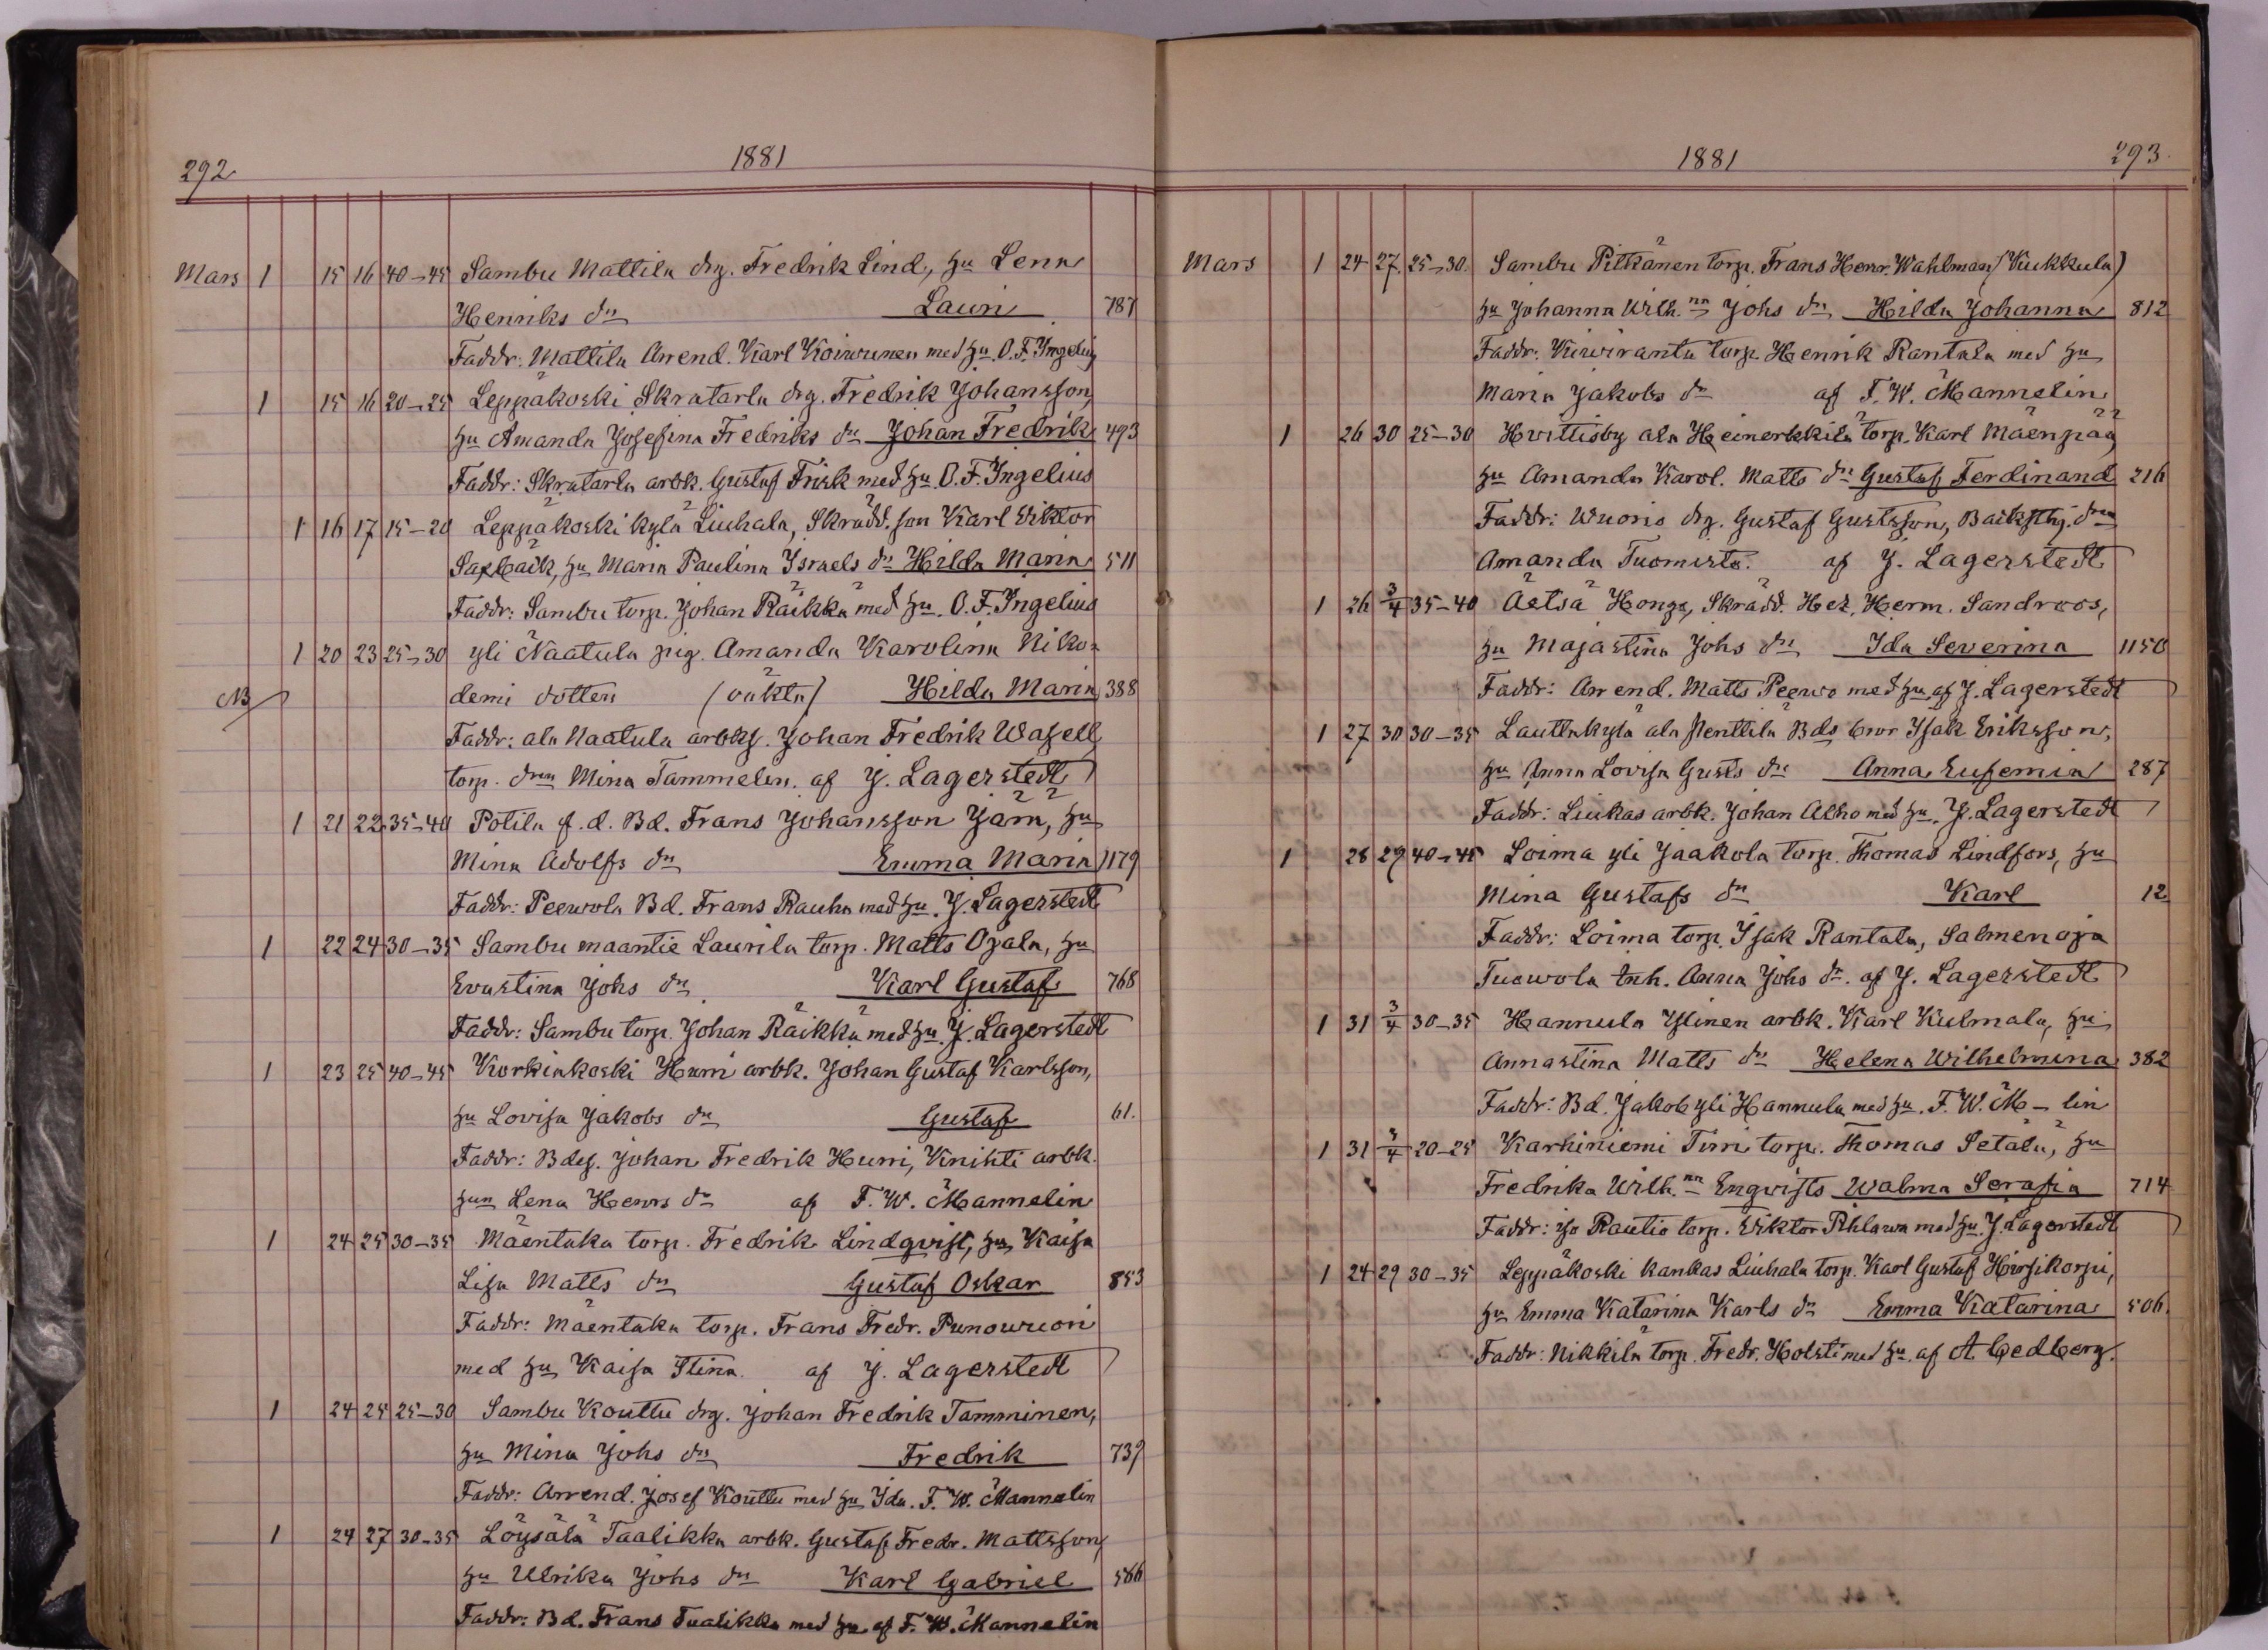 292
1881
Mars 1 15 16 40-45 Sambu Mattila drg. Fredrik Lind, hu Lena
Henriks dr Lauri 787
Faddr: Mattila Arrend. Karl Koiwunen med hu O. F. Ingelius
1 15 16 20-25 Leppäkoski Skratarla drg. Fredrik Johansson,
hu Amanda Josefina Fredriks dr Johan Fredrik 493
Faddr: Skratarla arbk. Gustaf Frisk med hu O. F. Ingelius
1 16 17 15-20 Leppäkoski kylä Liuhala, Skrädd. son Karl Viktor
Saxbäck, hu Maria Paulina Israels dr Hilda Maria 511
Faddr: Sambu torp. Johan Räikkä med hu. O. F. Ingelius
1 20 23 25-30 yli Naatula pig. Amanda Karolina Niko-
NB demi dotter (oäkta) Hilda Maria 388
Faddr: ala Naatula arbks. Johan Fredrik Wasell
torp. dren Mina Tammelin. af J. Lagerstedt
1 21 22 35-40 Potila f. d. Bd. Frans Johansson Jäm, hu
Mina Adolfs dr Emma Maria 1179
Faddr: Peewola Bd. Frans Rauha med hu. J. Lagerstedt
1 22 24 30-35 Sambu maantie Laurila torp. Matts Ojala, hu
Evastina Johs dr Karl Gustaf 768
Faddr: Sambu torp. Johan Räikkä med hu J. Lagerstedt
1 23 25 40-45 Korkiakoski Hurri arbk. Johan Gustaf Karlsson,
hu Lovisa Jakobs dr Gustaf 61.
Faddr: Bdes. Johan Fredrik Hurri, Knihti arbk.
hun Lena Henrs dr af F. W. Mannelin
1 24 25 30-35 Mäentaka torp. Fredrik Lindqvist, hu Kaisa
Lisa Matts dr Gustaf Oskar 853
Faddr: Mäentaka torp. Frans Fredr. Punowuori
med hu Kaisa Stina. af J. Lagerstedt
1 24 25 25-30 Sambu Kouttu drg. Johan Fredrik Tamminen,
hu Mina Johs dr Fredrik 739
Faddr: Arrend. Josef Kouttu med hu Ida. F. W. Mannelin
1 24 27 30-35 Löysälä Taalikka arbk. Gustaf Fredr. Mattsson,
hu Ulrika Johs dr Karl Gabriel 566
Faddr: Bd. Frans Taalikka med hu af F. W. Mannelin
1881
293
Mars 1 24 27 25-30 Sambu Pitkänen torp. Frans Henr. Wahlman (Kukkula)
hu Johanna Wilh.na Johs dr Hilda Johanna 812
Faddr: Kiwiranta torp. Henrik Rantala med hu
Maria Jakobs dr af F. W. Mannelin
1 26 30 25-30 Hvittisby ala Heinerkkilä torp. Karl Mäenpää,
hu Amanda Karol. Matts dr Gustaf Ferdinand 216
Faddr: Wuorio drg. Gustaf Gustsson, Backsthg. dren
Amanda Tuomisto. af J. Lagerstedt
1 26 3/4 35-40 Äetsä Honga, Skrädd. Hez. Herm. Sandroos,
hu Majastina Johs dr Ida Severina 1150
Faddr: Arrend. Matts Peewo med hu af J. Lagerstedt
1 27 30 30-35 Lauttakylä ala Penttilä Bds bror Isak Eriksson,
hu Anna Lovisa Gusts dr Anna Eufemia 287
Faddr: Liukas arbk. Johan Alho med hu. J. Lagerstedt
1 28 29 40-45 Loima yli Jaakola torp. Thomas Lindfors, hu
Mina Gustafs dr Karl 12
Faddr: Loima torp. Isak Rantala, Salmenoja
Tuowola Enh. Anna Johs dr. af J. Lagerstedt
1 31 3/4 30-35 Hannula Ylinen arbk. Karl Kulmala, hu
Annastina Matts dr Helena Wilhelmina 382
Faddr: Bd. Jakob yli Hannula med hu. F. W. M-lin
1 31 4/4 20-25 Karhiniemi Tirri torp. Thomas Setälä, hu
Fredrika Wilh.na Engvists Walma Serafia 714
Faddr: iso Rautio torp. Viktor Pihlawa med hu. J. Lagerstedt
1 24 29 30-35 Leppäkoski kankas Liuhala torp. Karl Gustaf Hirsikorpi,
hu Emma Katarina Karls dr Emma Katarina 506.
Faddr: Nikkilä torp. Fredr. Holsti med hu. af A Cedberg.